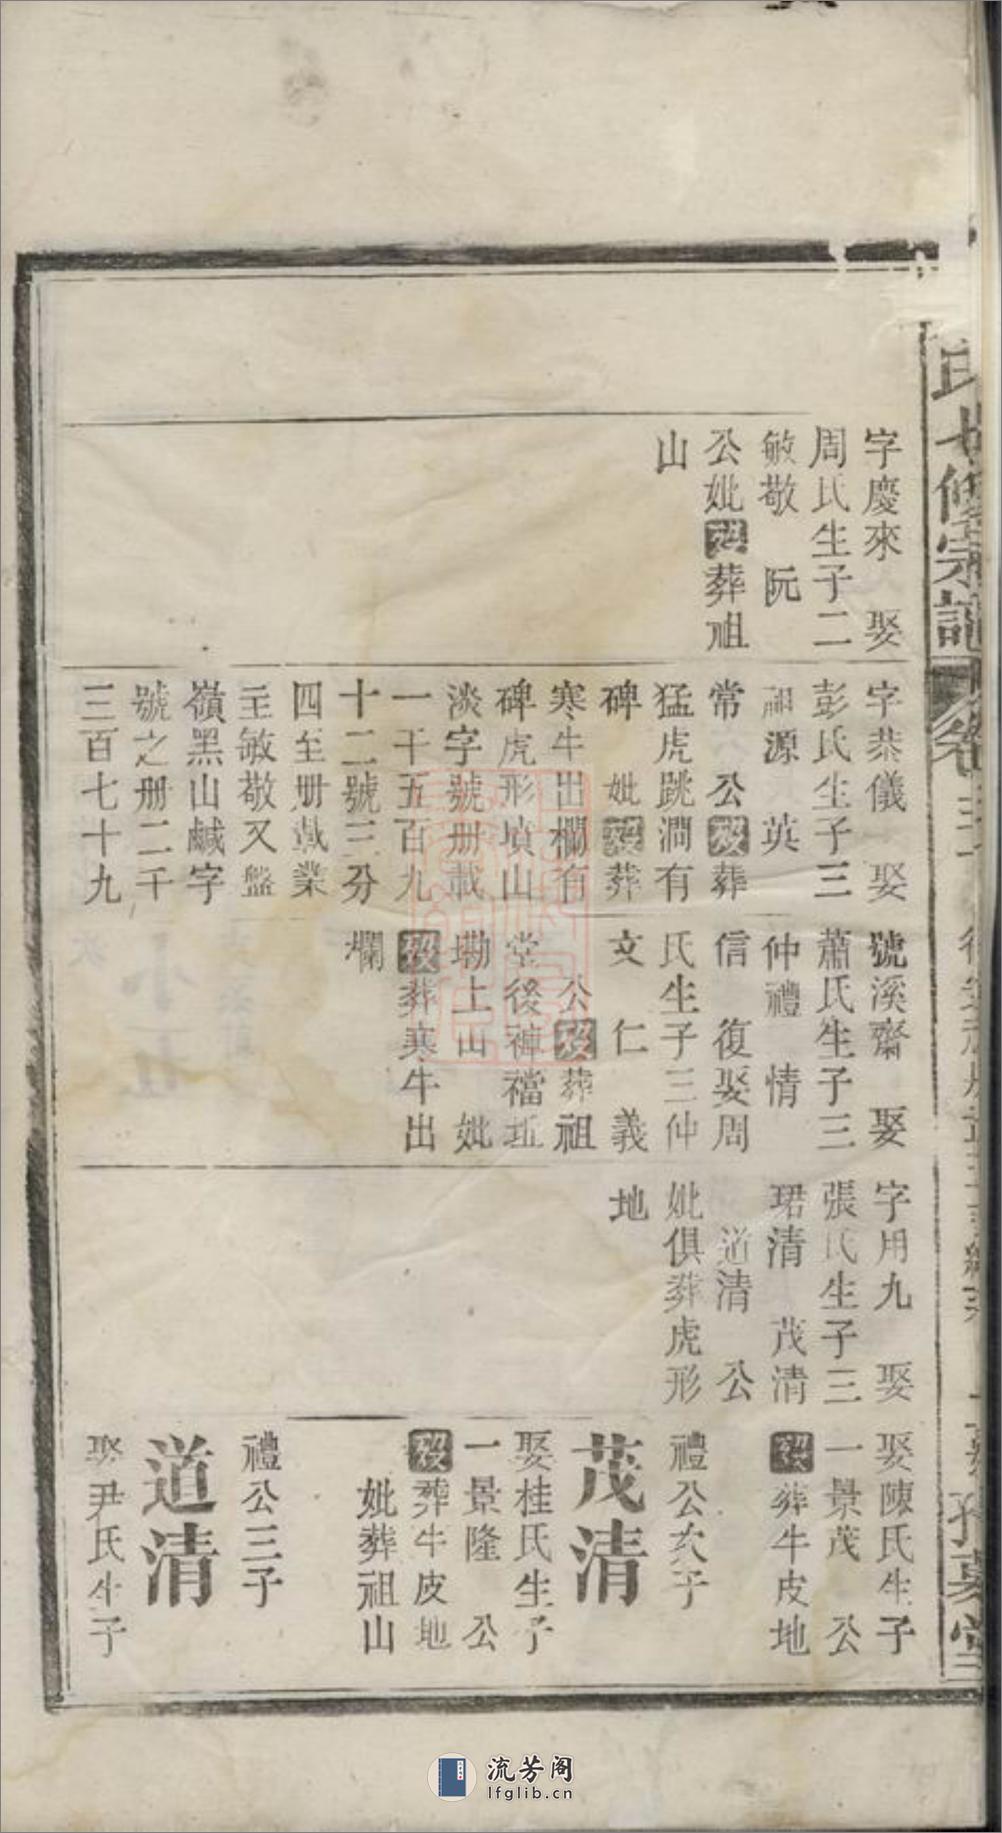 字慶來　娶
周氏生子二
敏敬　阮
公妣歿葬祖
山
字恭儀　娶
彭氏生子三
源　英
常　公歿葬
猛虎跳澗有
碑　妣歿葬
寒牛出欄有
碑虎形墳山
淡字號册載
一千五百九
十二號三分
四至册載業
主敏敬又盤
嶺黑山鹹字
號之册二千
三百七十九
號溪齋　娶
蕭氏生子三
仲禮　情
信　復娶周
氏生子三仲
文　仁　義
　公歿葬祖
堂後褲襠坵
塝上山　妣
歿葬寒牛出
欄
字用九　娶
張氏生子三
珺清　茂清
　道清　公
妣俱葬虎形
地
娶陳氏生子
一景茂　公
歿葬牛皮地
禮公次子
茂清
娶桂氏生子
一景隆　公
歿葬牛皮地
　妣葬祖山
禮公三子
道清
娶尹氏生子
氏七修宗譜
卷
堂
流芳阁
lfglib.cn